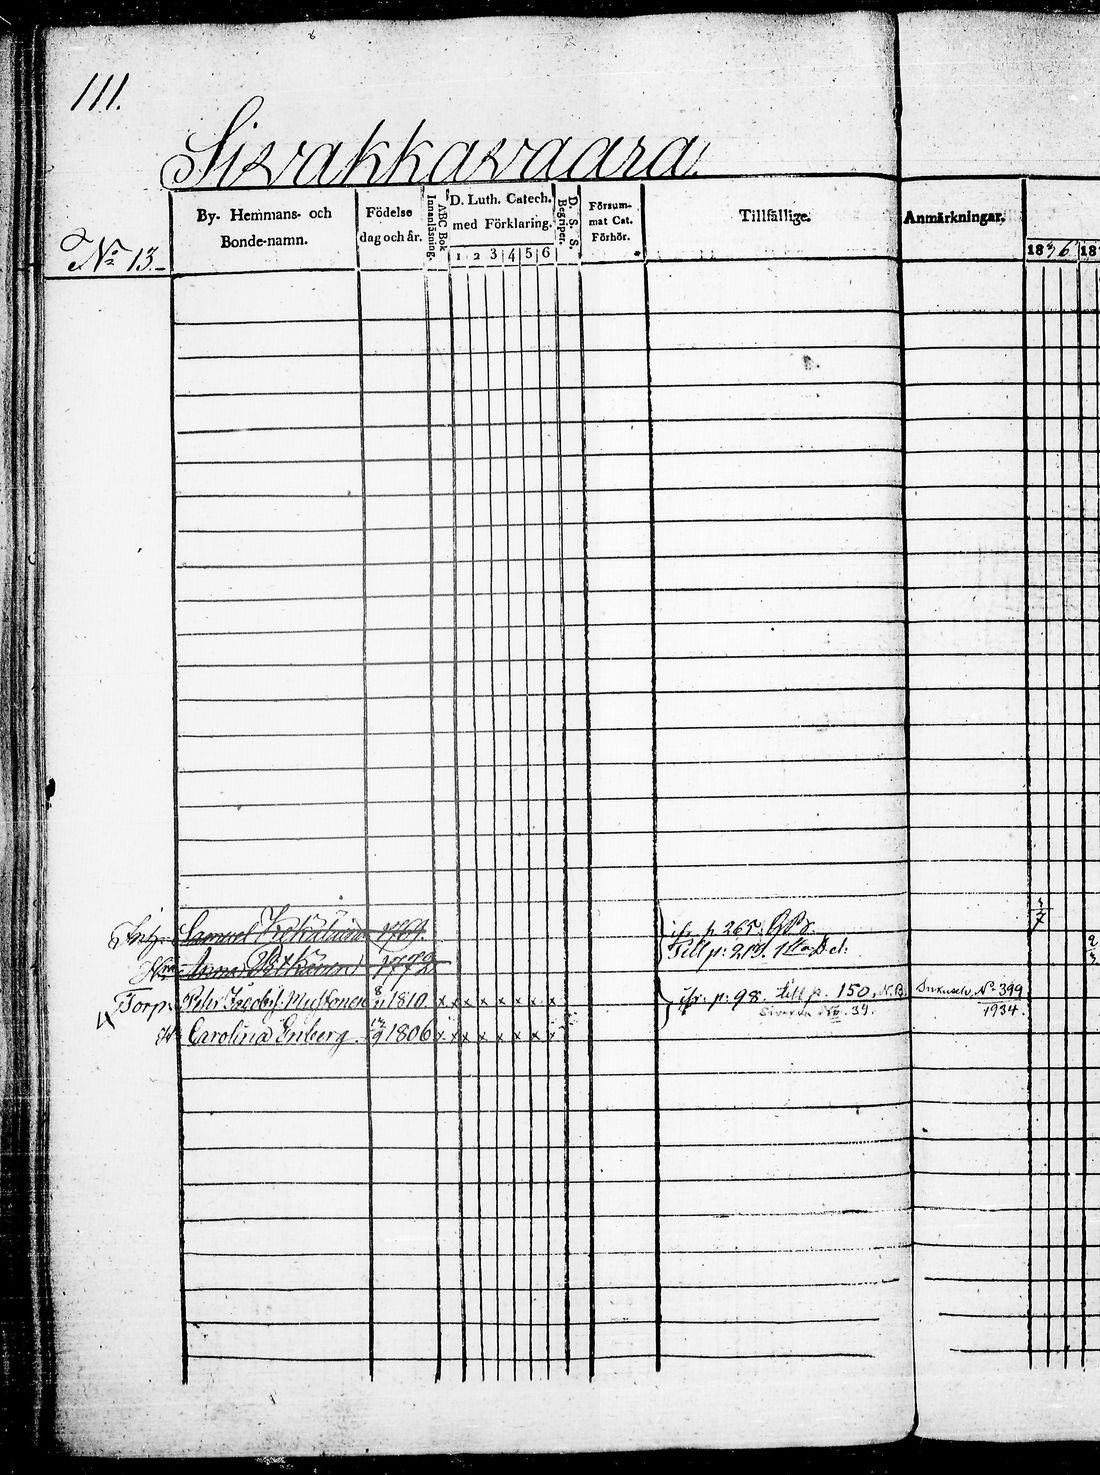 111.
Sivakkavaara.
No 13.
By- Hemmans- och Bonde-namn.
Födelse dag och år.
ABC Bok Innanläsning.
D. Luth. Catech. med Förklaring.
1 2 3 4 5 6
D. S. S. Begriper.
Försummat Cat. Förhör.
Tillfällige.
Anmärkningar.
1836 18
Inh. Samuel 1769. ifr p 265.
Anna 1772 Till p: 219.
Torp: Petr Muftonen 8/11 1810. x x x x x x x ifr: p: 98. till p. 150. N.B. No 399
No. 39. 1934.
Carolina Enberg 17/9 1806 x x x x x x x